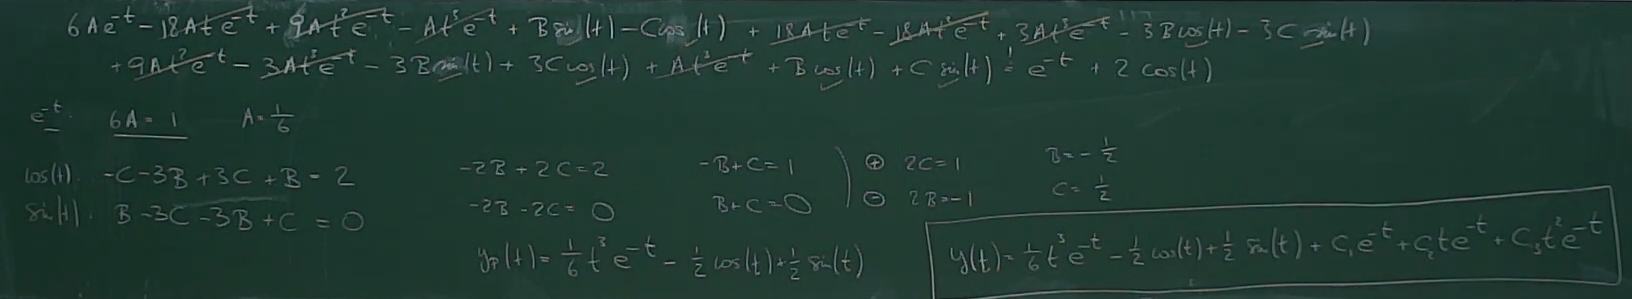 6Ae^{-t} - 18Ate^{-t} + 9At²e^{-t} - At³e^{-t} + B sin(t) - C cos(t) + 18Ate^{-t} - 18At²e^{-t} + 3At³e^{-t} - 3B cos(t) - 3C sin(t)
+ 9At²e^{-t} - 3At³e^{-t} - 3B sin(t) + 3C cos(t) + At³e^{-t} + B cos(t) + C sin(t) = e^{-t} + 2 cos(t)
e^{-t}: 6A = 1 A = 1/6
cos(t): -C - 3B + 3C + B = 2 -2B + 2C = 2 -B + C = 1 ⊕ 2C = 1 B = -1/2
sin(t): B - 3C - 3B + C = 0 -2B - 2C = 0 B + C = 0 ⊖ 2B = -1 C = 1/2
y_p(t) = 1/6 t³e^{-t} - 1/2 cos(t) + 1/2 sin(t)
y(t) = 1/6 t³e^{-t} - 1/2 cos(t) + 1/2 sin(t) + C₁e^{-t} + C₂te^{-t} + C₃t²e^{-t}